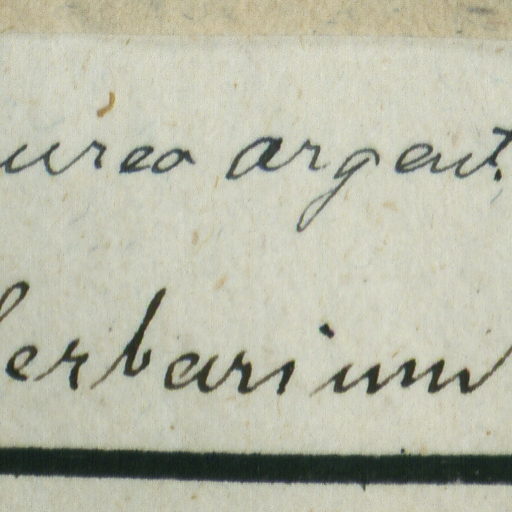 urea argent.
herbarium